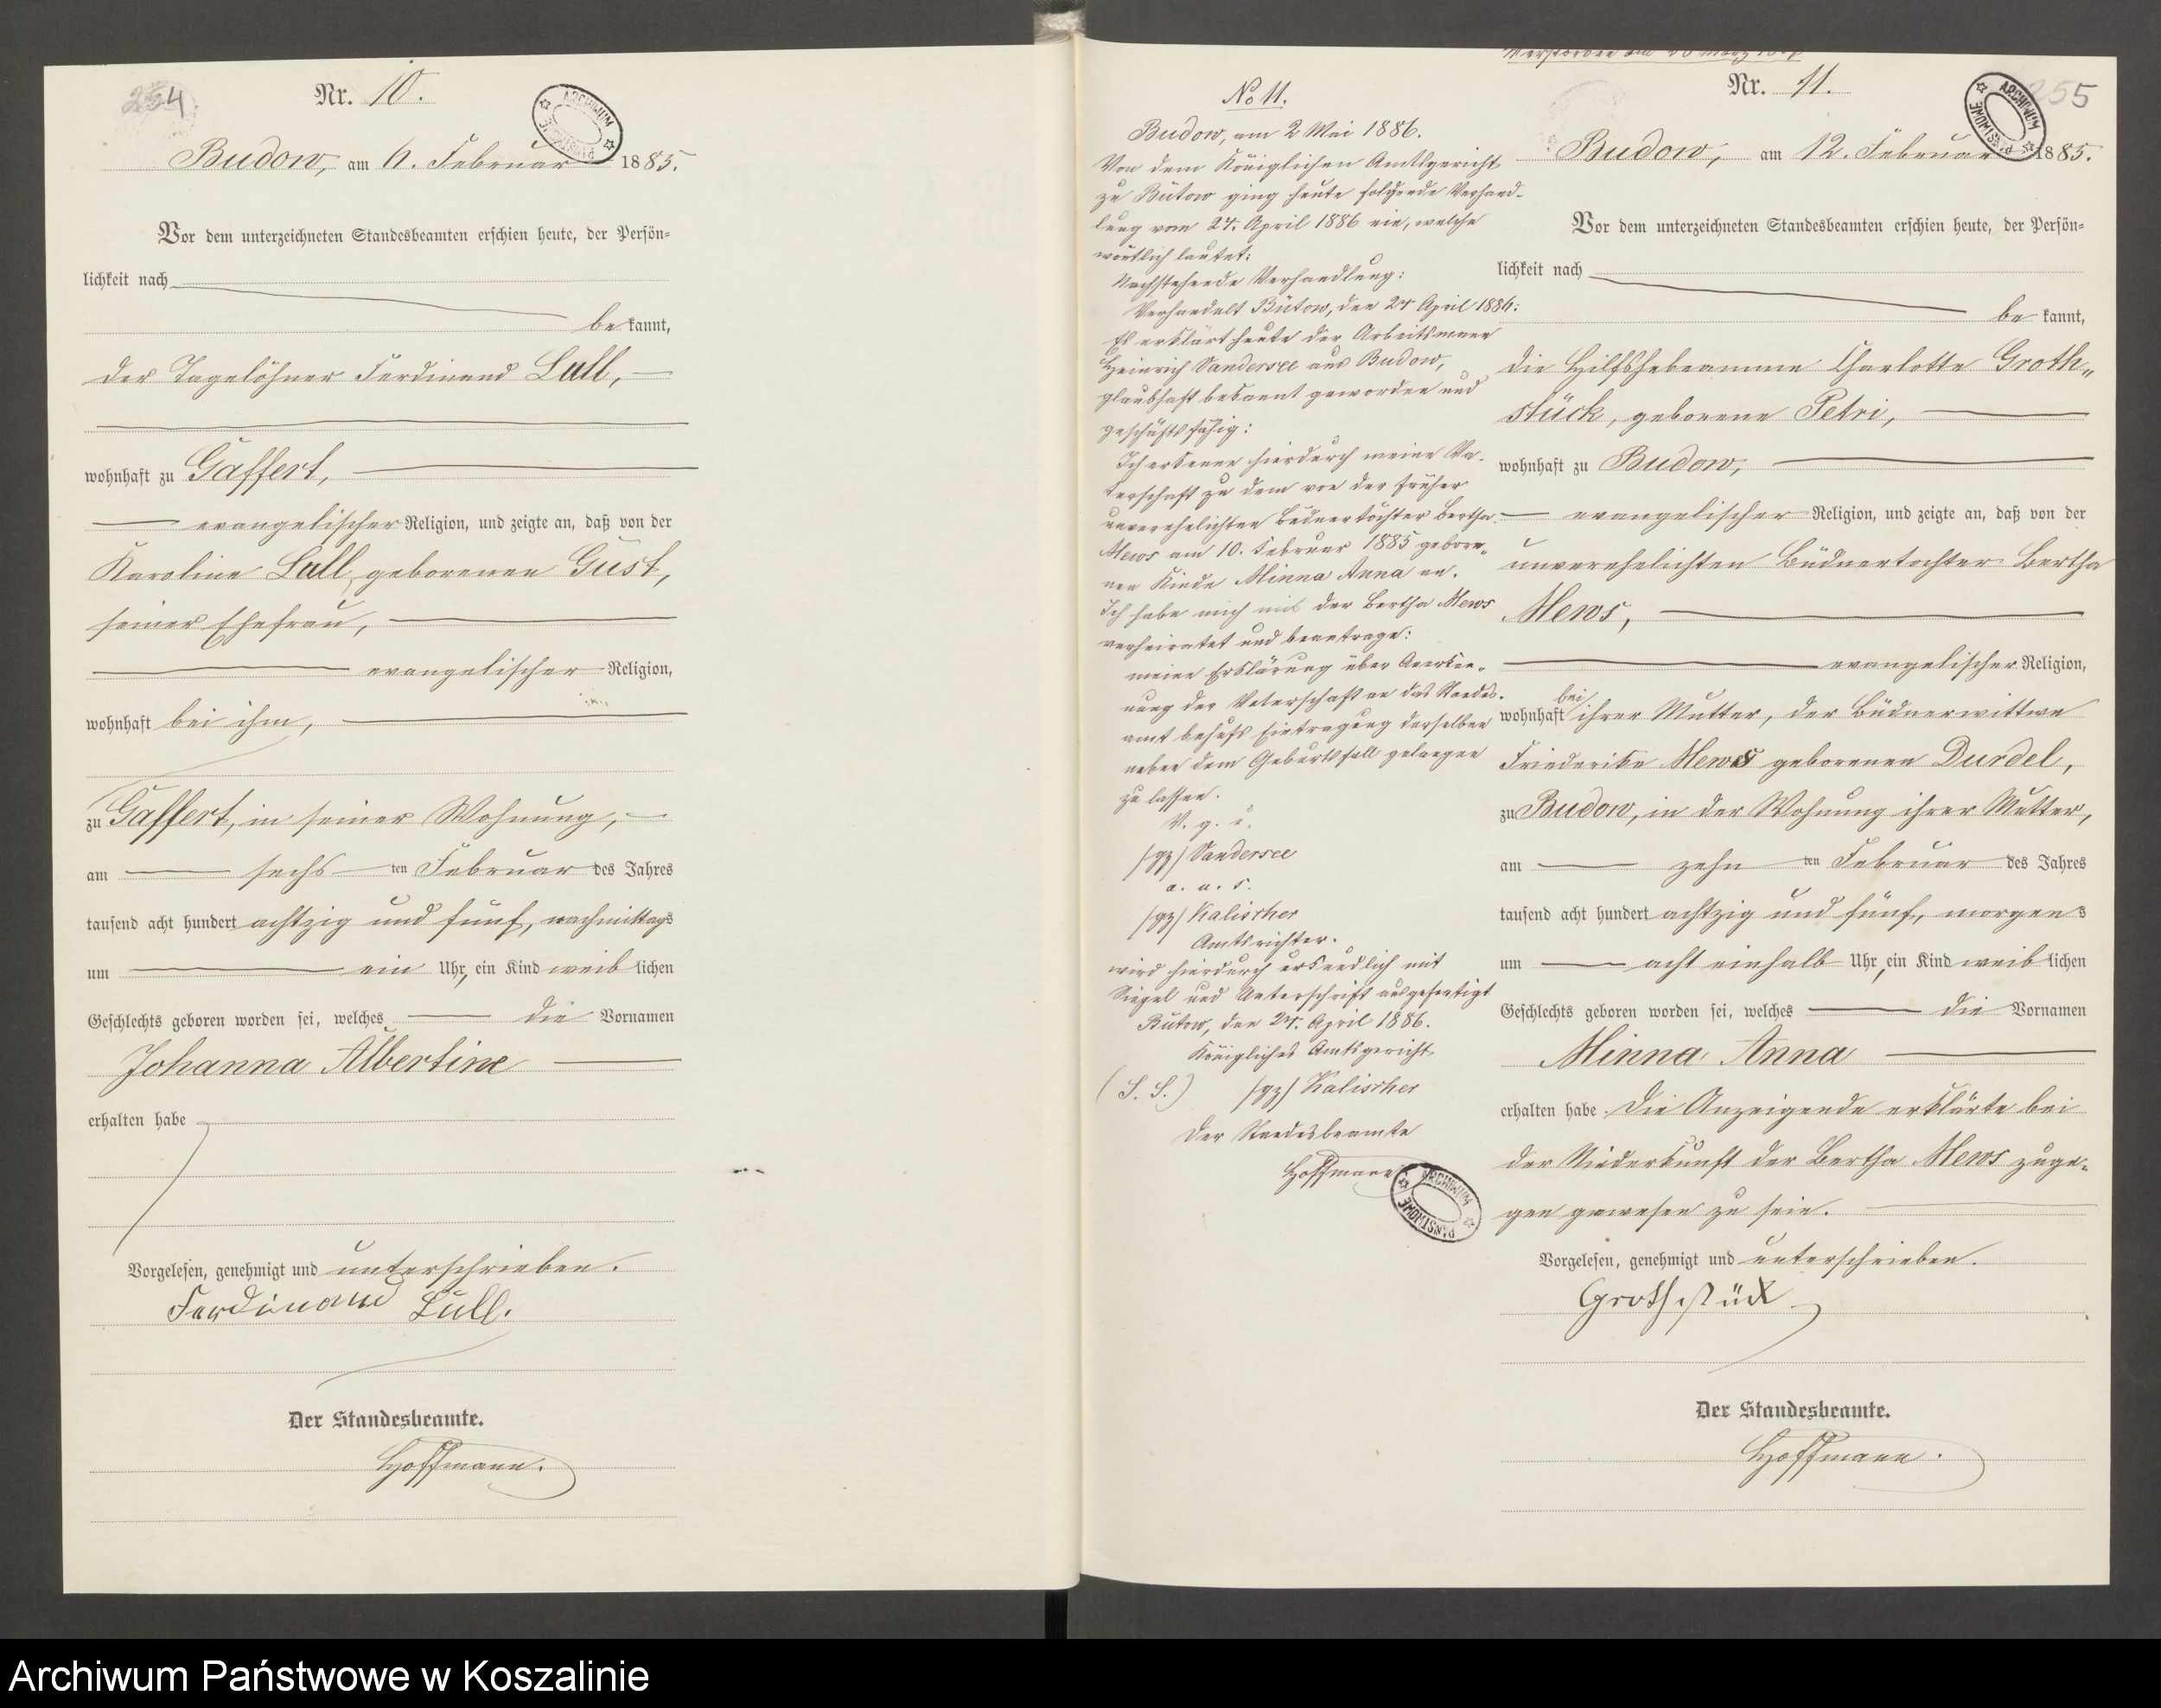 254
Nr. 10.
Budow, am 6. Februar 1885.
Vor dem unterzeichneten Standesbeamten erschien heute, der Persön-
lichkeit nach
be kannt,
der Tagelöhner Ferdinand Lull,
wohnhaft zu Gaffert,
evangelischer Religion, und zeigte an, daß von der
Karoline Lull geborenen Gust,
seiner Ehefrau,
evangelischer Religion,
wohnhaft bei ihm,
zu Gaffert, in seiner Wohnung,
am sechs ten Februar des Jahres
tausend acht hundert achtzig und fünf, nachmittags
um ein Uhr, ein Kind weib lichen
Geschlechts geboren worden sei, welches die Vornamen
Johanna Albertine
erhalten habe
Vorgelesen, genehmigt und unterschrieben.
Ferdinand Lull.
Der Standesbeamte.
Hoffmann.
No 11.
Budow, am 2 Mai 1886.
Von dem Königlichen Amtsgericht
zu Bütow ging heute folgende Verhand-
lung vom 24. April 1886 ein, welche
wörtlich lautet:
Nachstehende Verhandlung:
Verhandelt Bütow, den 24 April 1886:
Es erklärt heute der Arbeitsmann
Heinrich Sandersee aus Budow,
glaubhaft bekannt geworden und
geschäftsfähig:
Ich erkenne hierdurch meine Va-
terschaft zu dem von der früher
unverehelichten Büdnertochter Bertha
Mews am 10. Februar 1885 gebore-
nen Kinde Minna Anna an.
Ich habe mich mit der Bertha Mews
verheiratet und beantrage:
meine Erklärung über Anerken-
nung der Vaterschaft an das Standes-
amt behufs Eintragung derselben
neben dem Geburtsfall gelangen
zu lassen.
V. g. u.
/gz/ Sandersee
a. u. s.
/gz/ Kalischer
Amtsrichter.
wird hierdurch urkundlich mit
Siegel und Unterschrift ausgefertigt
Bütow, den 24. April 1886.
Königliches Amtsgericht
(L. S.) /gz/ Kalischer
Der Standesbeamte
Hoffmann
Verstorben am
Nr. 11.
255
Budow, am 12. Februar 1885.
Vor dem unterzeichneten Standesbeamten erschien heute, der Persön-
lichkeit nach
be kannt,
die Hilfshebeamme Charlotte Groth-
stück, geborene Petri,
wohnhaft zu Budow,
evangelischer Religion, und zeigte an, daß von der
unverehelichten Büdnertochter Bertha
Mews,
evangelischer Religion,
wohnhaft bei ihrer Mutter, der Büdnerwittwe
Friederike Mews geborenen Durdel,
zu Budow, in der Wohnung ihrer Mutter,
am zehn ten Februar des Jahres
tausend acht hundert achtzig und fünf, morgens
um acht einhalb Uhr, ein Kind weib lichen
Geschlechts geboren worden sei, welches die Vornamen
Minna Anna
erhalten habe. Die Anzeigende erklärte bei
der Niederkunft der Bertha Mews zuge-
gen gewesen zu sein.
Vorgelesen, genehmigt und unterschrieben.
Grothstück
Der Standesbeamte.
Hoffmann.
ARCHIWUM PAŃSTWOWE
Archiwum Państwowe w Koszalinie